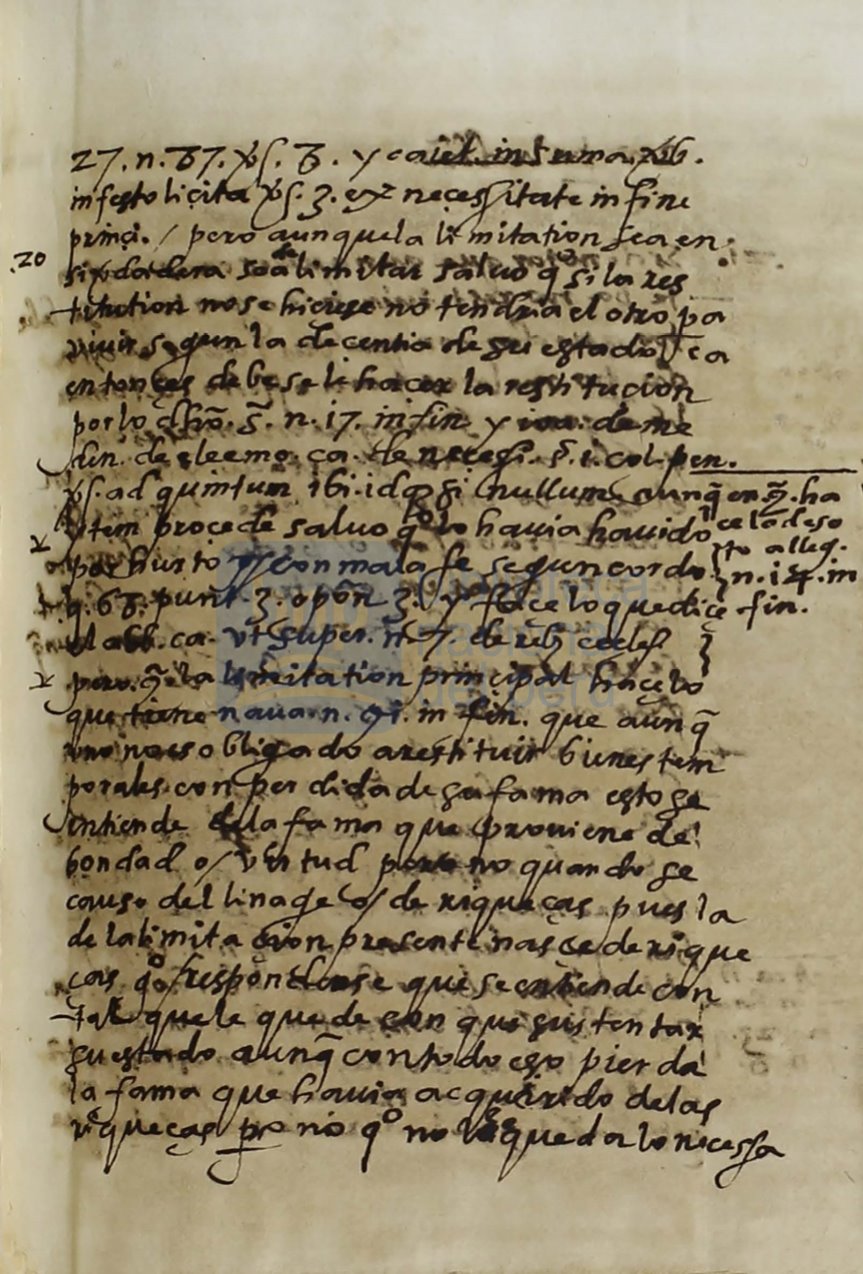 27. n. 87. vs. 8. y caiet. in suma. verb.
infesto licita vs. 3. ex necessitate in fine
princi. / pero aunque la limitation sea en
20
si verdadera se a de limitar salvo qdo si la res
titution no se hiciese no tendria el otro pa
vivir segun la decentia de su estado ca
entonces debesele hacer la restitucion
por lo dho. §. n. 17. in fin y
de eleemo. ca. de necessi. §. 1. col. pen.
vs. ad quintum ibi. idq si nullum. aunq en
item procede salvo qdo lo havia havido
por hurto con mala fe segun cordo
q. 68. punt. 3. opon 3. y face lo que dice
el abb. ca. vt super. n. 7. de reb. eccles
ha
ce lo deso
to alleg.
n. 14. in
fin.
pero. la limitation principal hace lo
que tiene nava. n. 91. in fin. que aunq
uno no es obligado a restituir bienes tem
porales con perdida de su fama esto se
entiende de la fama que proviene de
bondad o/ virtud pero no quando se
causo del linage o/ de riqueças pues la
de la limitacion presente nasce de rique
ças qdo respondense que se entiende con
tal que le quede con que sustentar
su estado aunq con todo eso pierda
la fama que havia acquirido de las
riqueças pero no qdo no le queda lo necessa